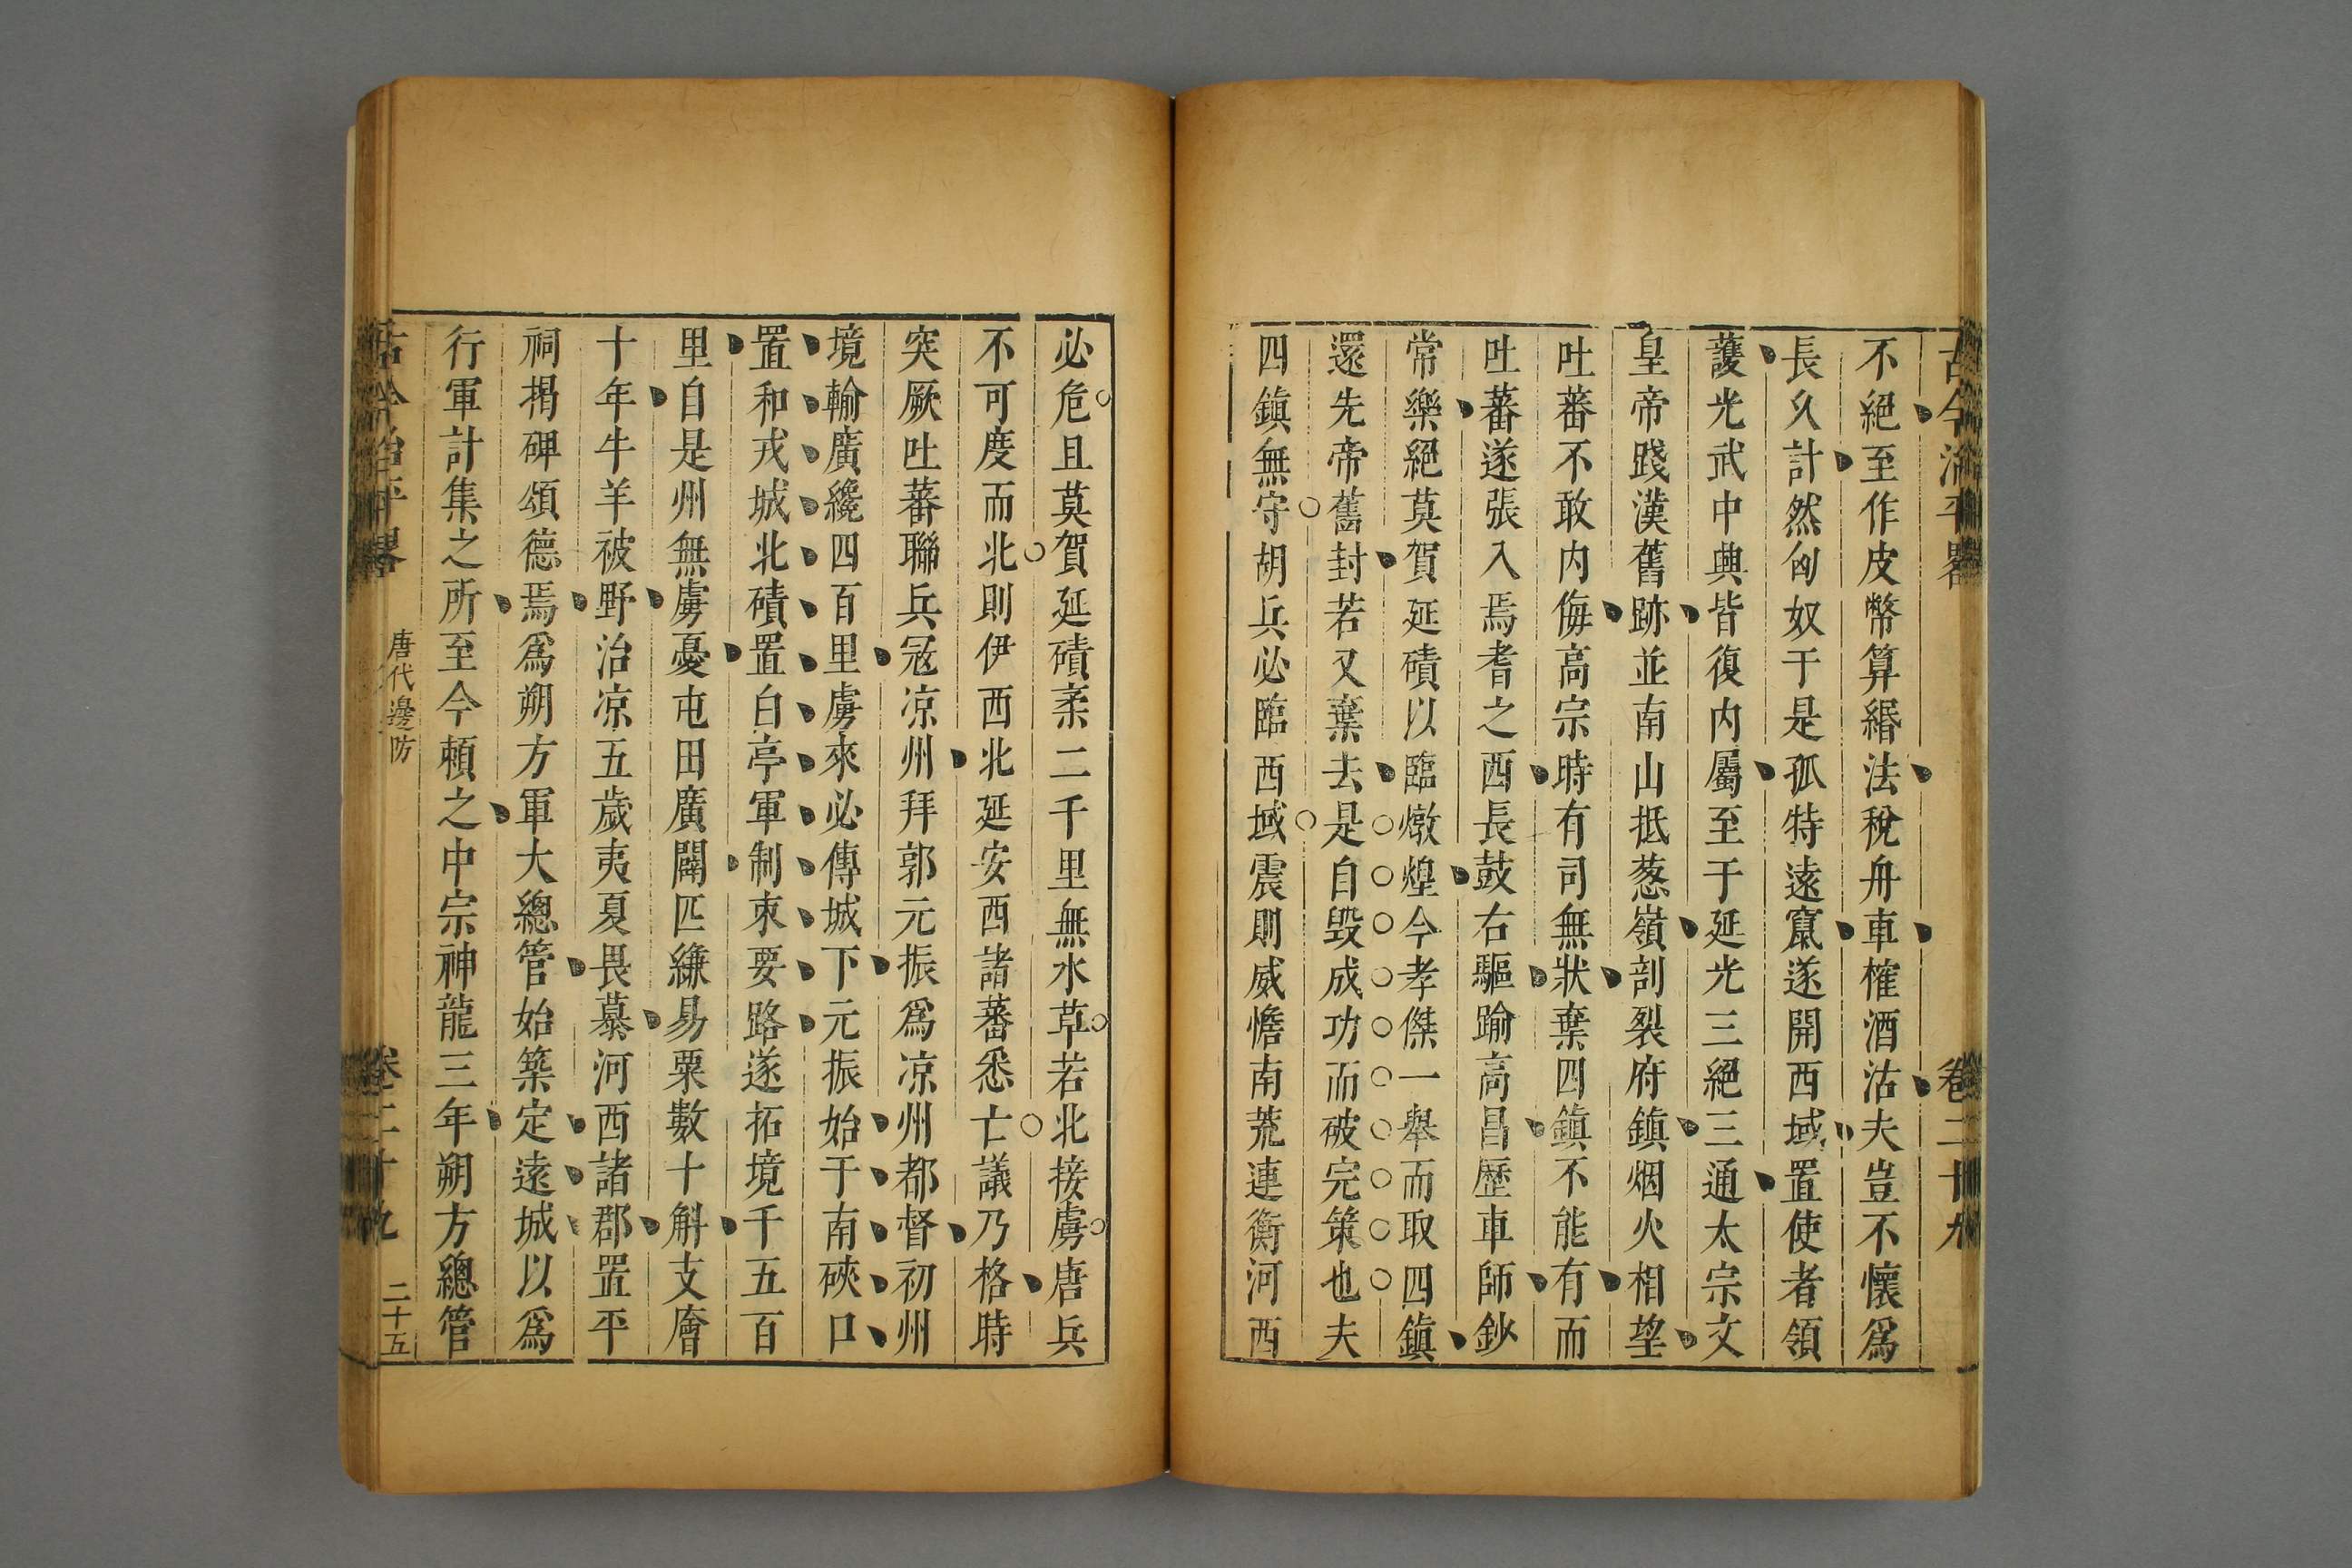 古今治平畧
卷二十九
不絕至作皮幣算緡法稅舟車榷酒沽夫豈不懷爲
長久計然匈奴于是孤特遠竄遂開西域置使者領
護光武中興皆復内屬至于延光三絕三通太宗文
皇帝踐漢舊跡並南山抵葱嶺剖裂府鎮烟火相望
吐蕃不敢内侮高宗時有司無狀棄四鎮不能有而
吐蕃遂張入焉耆之西長鼓右驅踰高昌歷車師鈔
常樂絕莫賀延磧以臨燉煌今孝傑一舉而取四鎮
還先帝舊封若又棄去是自毀成功而破完策也夫
四鎮無守胡兵必臨西域震則威憺南荒連衡河西
必危且莫賀延磧袤二千里無水草若北接虜唐兵
不可度而北則伊西北延安西諸蕃悉亡議乃格時
突厥吐蕃聯兵冦凉州拜郭元振爲凉州都督初州
境輸廣纔四百里虜來必傳城下元振始于南硤口
置和戎城北磧置白亭軍制朿要路遂拓境千五百
里自是州無虜憂屯田廣闢匹縑易粟數十斛支廥
十年牛羊被野治凉五歲夷夏畏慕河西諸郡置平
祠揭碑頌德焉爲朔方軍大總管始築定遠城以爲
行軍計集之所至今賴之中宗神龍三年朔方總管
古今治平畧
唐代邊防
卷二十九
二十五